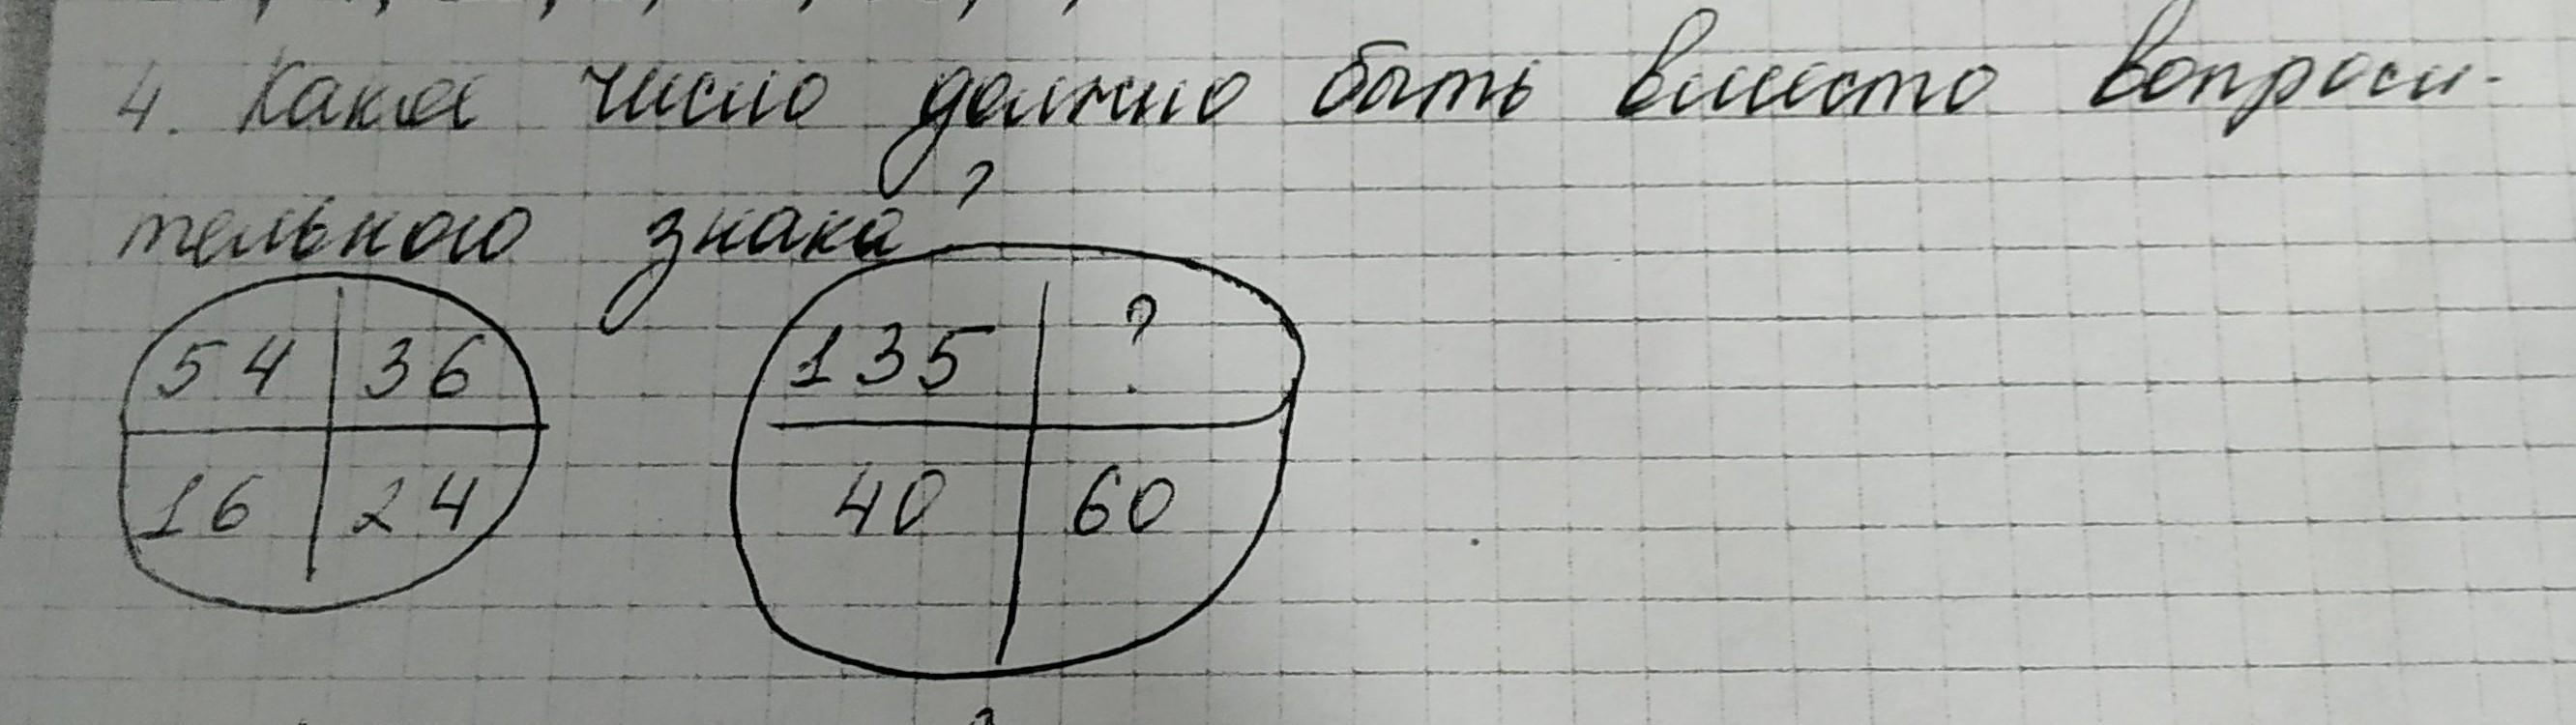 4. Какое число должно быть вместо вопроси-
тельного знака?
54 36
16 24
135 ?
40 60